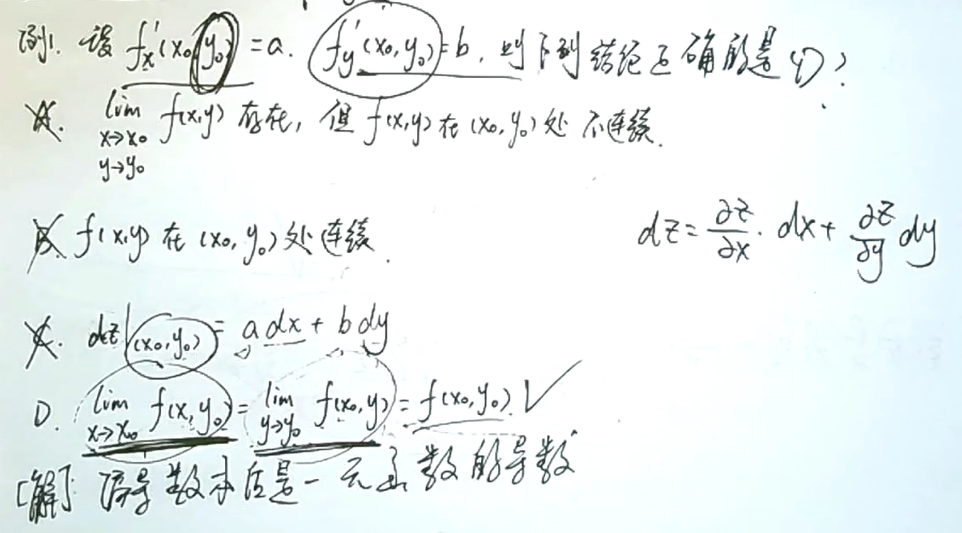 例1. 设 f'x(x0, y0) = a. f'y(x0, y0) = b, 则下列结论正确的是( )?
A. lim x→x0 y→y0 f(x,y) 存在, 但 f(x,y) 在 (x0, y0) 处 不连续.
B. f(x,y) 在 (x0, y0) 处 连续.
dz = ∂z/∂x · dx + ∂z/∂y dy
C. dz|(x0,y0) = a dx + b dy
D. lim x→x0 f(x, y0) = lim y→y0 f(x0, y) = f(x0, y0). √
[解]: 偏导数本质是一元函数的导数